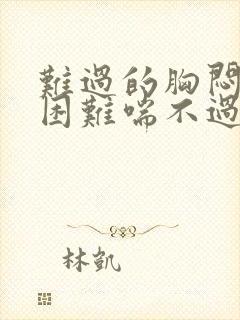 難過的胸悶
困難喘不過
林凱